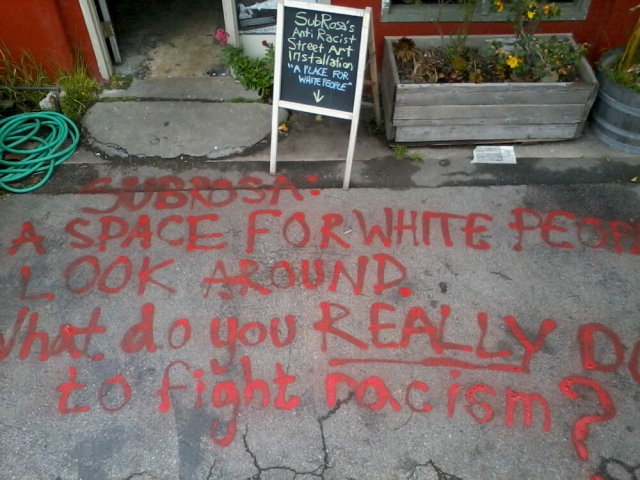 SubRosa's
Anti Racist
Street Art
Installation
"A PLACE FOR
WHITE PEOPLE"
SUBROSA:
A SPACE FOR WHITE PEOP
LOOK AROUND.
What do you REALLY DO
to fight racism?